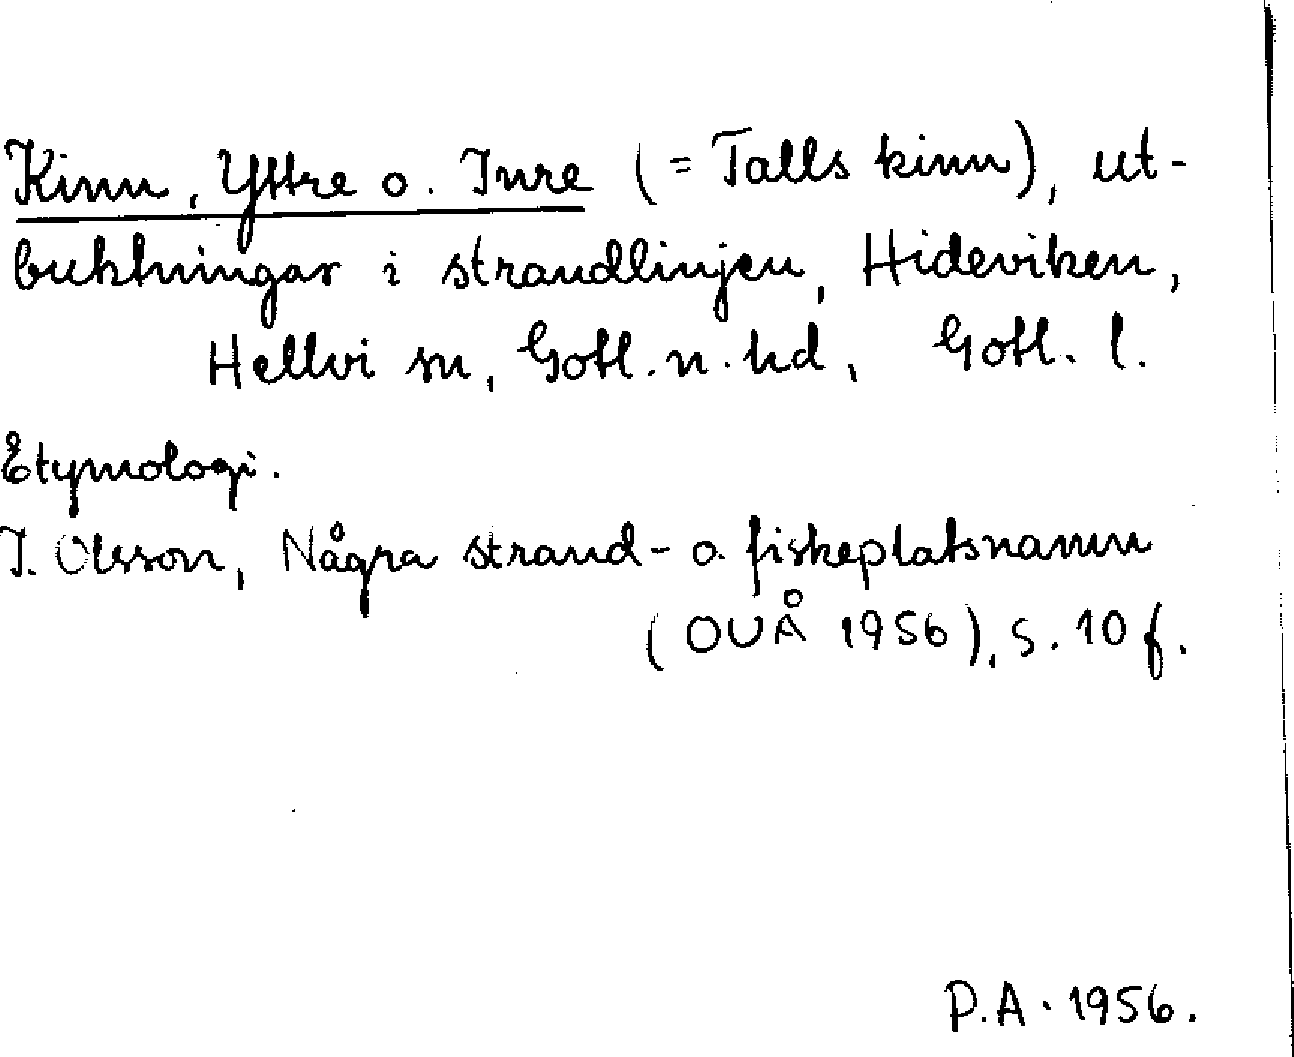 Kinn, Yttre o. Inre (= Talls kinn), ut-
buktningar i strandlinjen, Hideviken,
Hellvi sn, Gotl. n. hd, Gotl. l.
Etymologi.
I. Olsson, Några strand- o. fiskeplatsnamn
(OUÅ 1956), s. 10 f.
P.A. 1956.